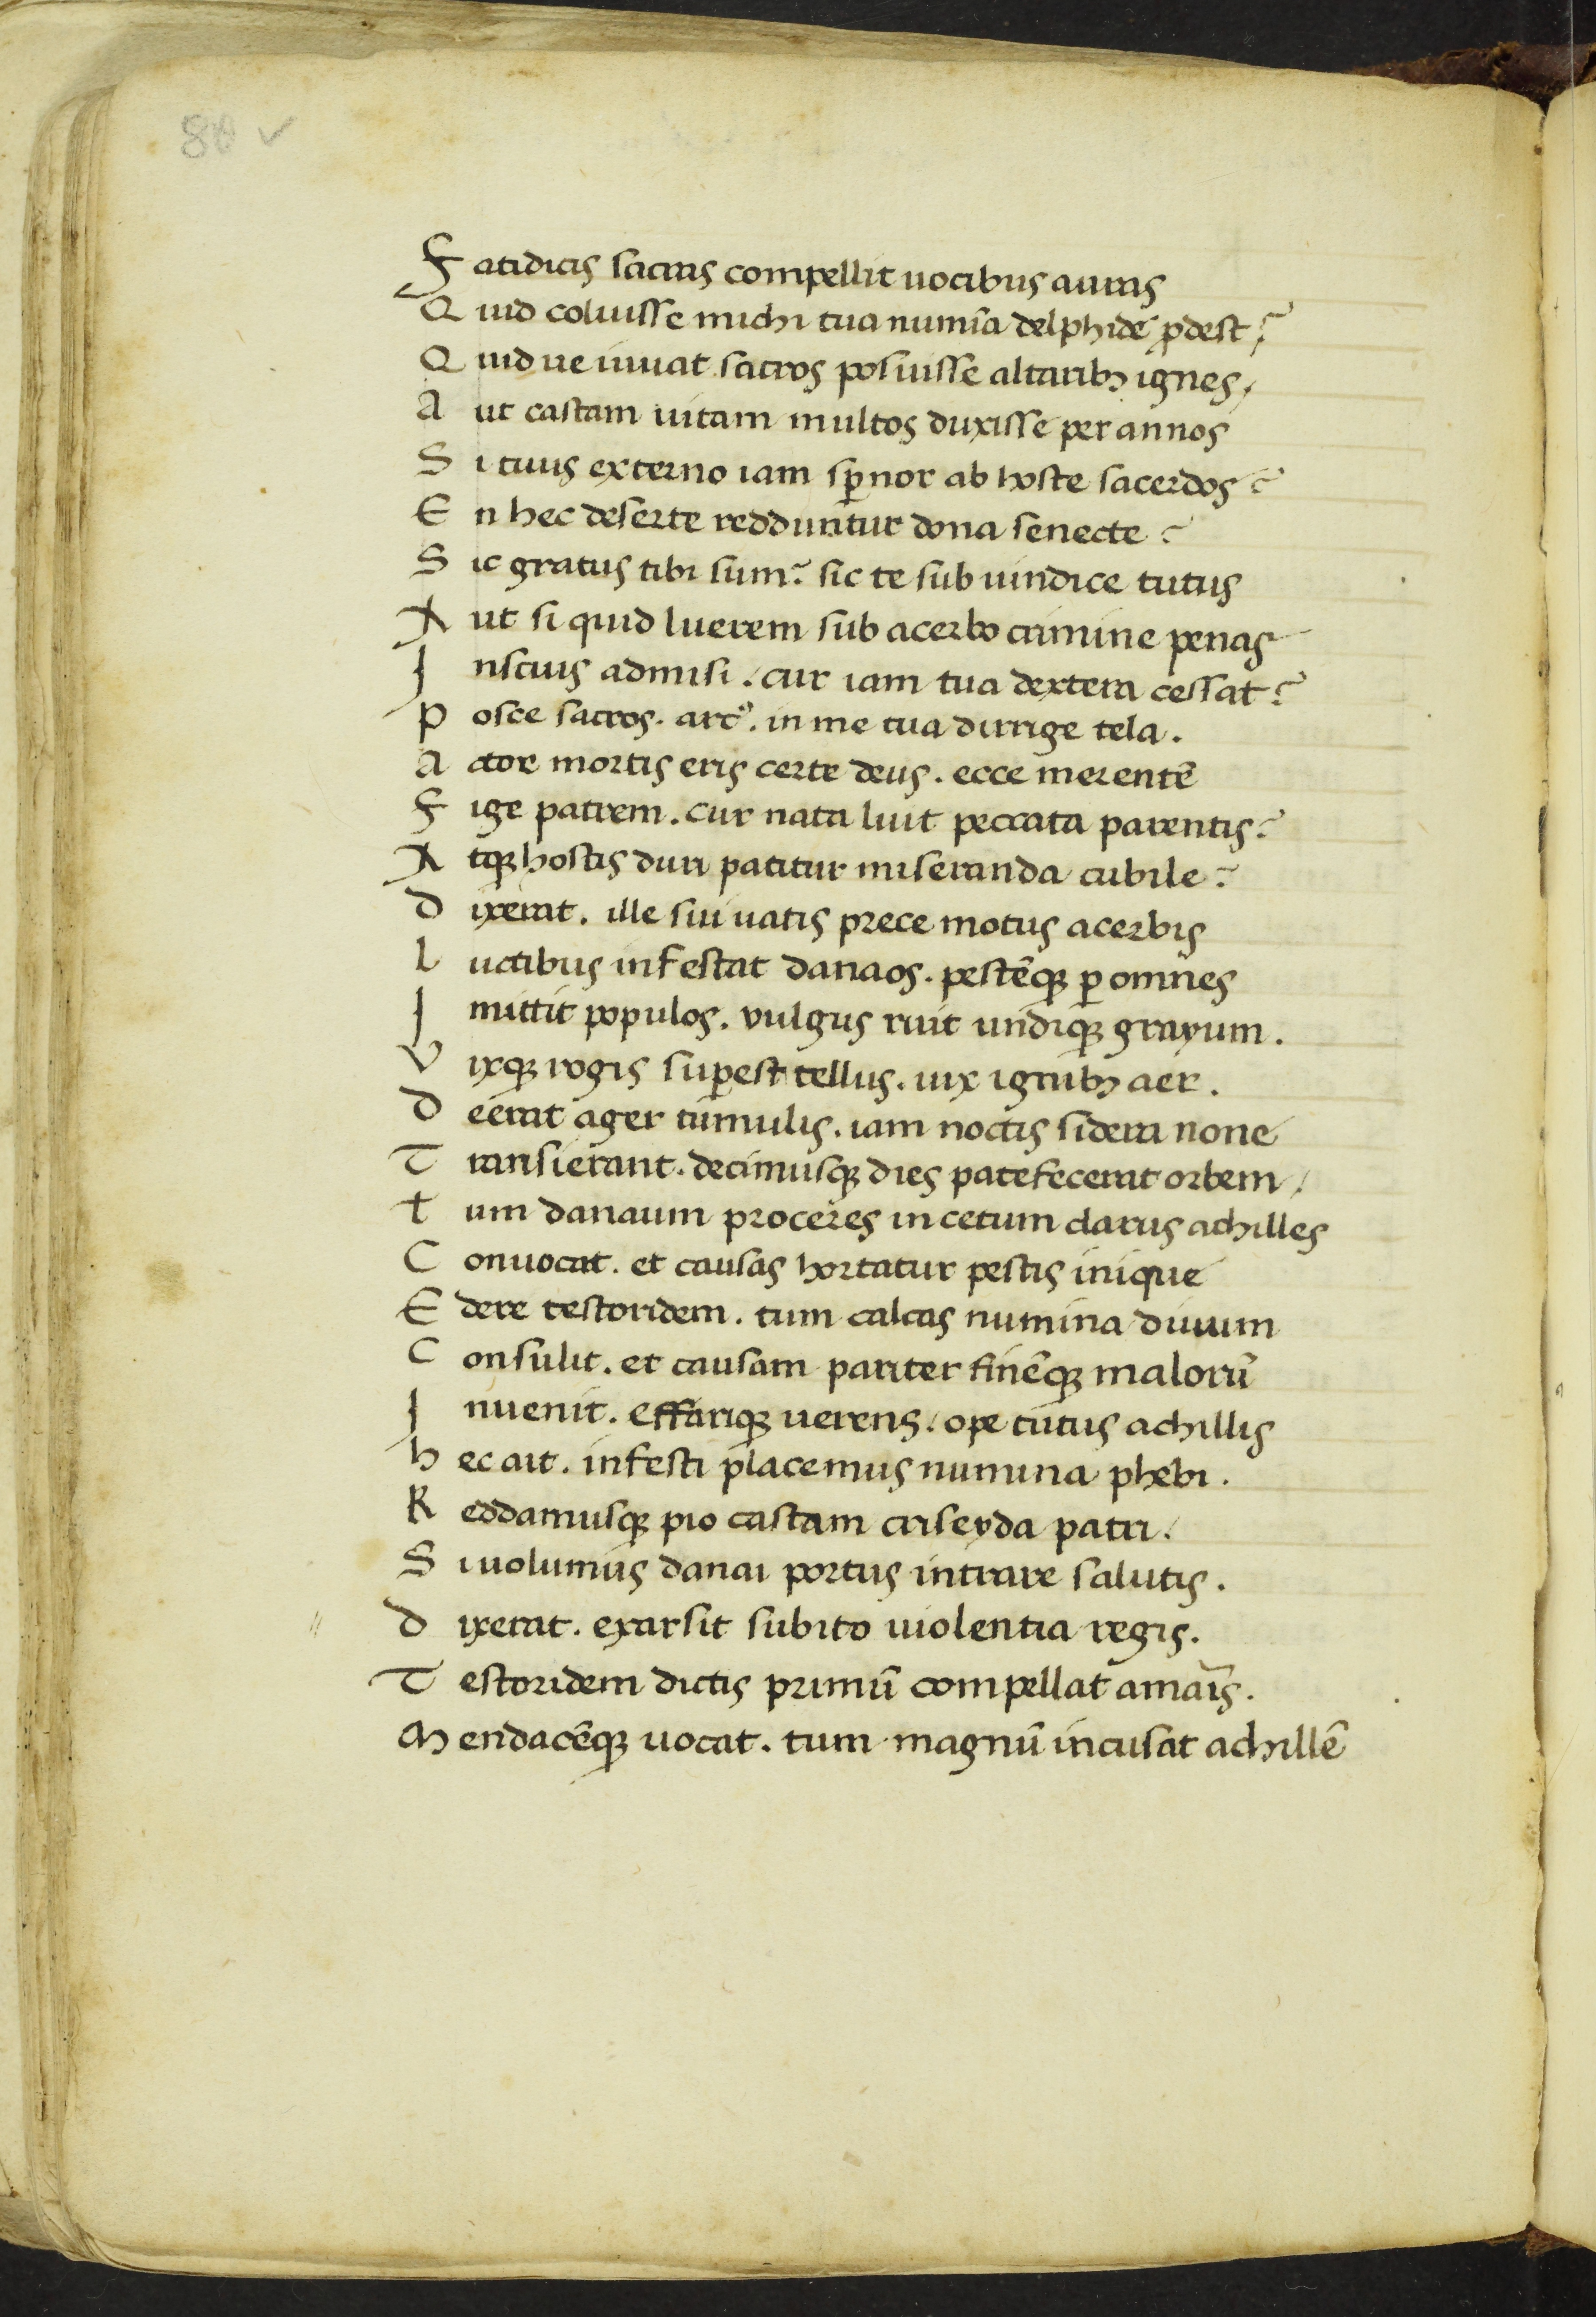 80 v
Fatidicis sacras compellit uocibus auras
Quid coluisse michi tua numīa delphide ꝓdest?
Quid ue iuuat sacros posuisse altaribꝫ ignes /
Aut castam uitam multos duxisse per annos
Si tuus externo iam sꝑnor ab hoste sacerdos?
En hec deserte redduntur dona senecte?
Sic gratus tibi sum? sic te sub uindice tutus
Aut si quid luerem sub acerbo crimine penas
Inscius admisi / cur iam tua dextera cessat?
Posce sacros. arcꝰ. in me tua dirrige tela.
Actor mortis eris certe deus. ecce merentē
Fige patrem. cur nata luit peccata parentis?
Atqꝫ hostis duri patitur miseranda cubile?
dixerat. ille sui uatis prece motus acerbis
luctibus infestat danaos. pestēqꝫ ꝑ omnes
Imittit populos. vulgus ruit undiqꝫ grayum.
Vixqꝫ rogis suꝑest tellus. uix ignibꝫ aer.
deerat ager tumulis. iam noctis sidera none
Transierant. decimusqꝫ dies patefecerat orbem /
tum danaum proceres in cetum clarus achilles
Conuocat. et causas hortatur pestis inique
Edere testoridem. tum calcas numina diuum
Consulit. et causam pariter finēqꝫ malorū
Inuenit. effariqꝫ uerens / ope tutus achillis
hec ait. infesti placemus numina phebi.
Reddamusqꝫ pio castam criseyda patri /
Si uolumus danai portus intrare salutis.
dixerat. exarsit subito uiolentia regis.
Testoridem dictis primū compellat amaīs.
Mendacēqꝫ uocat. tum magnū incusat achillē